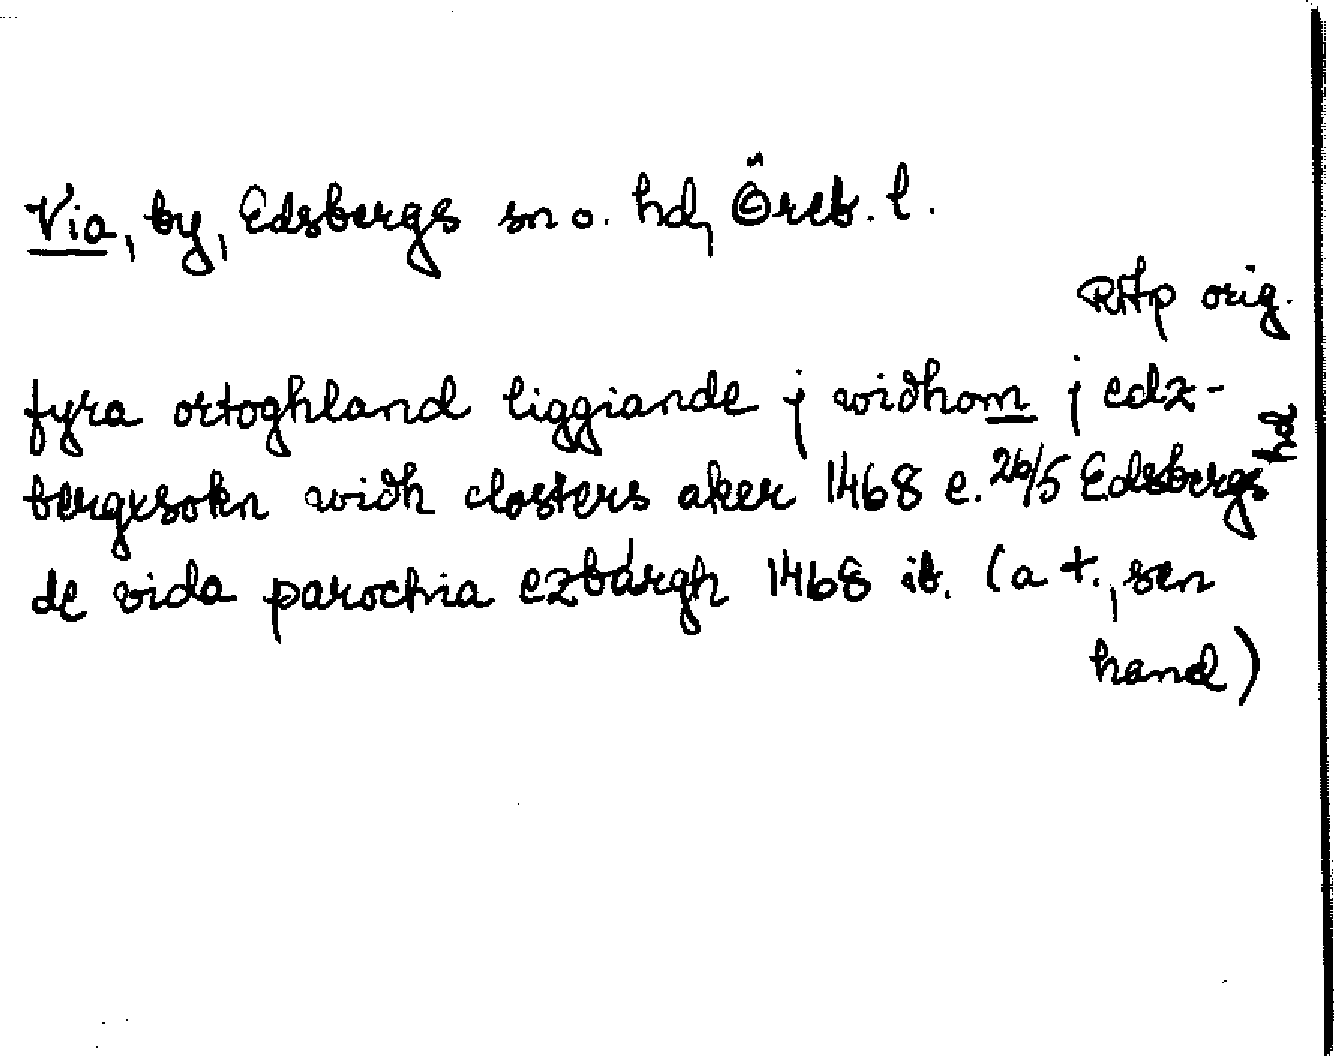 Via, by, Edsbergs sn o. hd, Öreb. l.
RAp orig.
fyra ortoghland liggiande j widhom j edz-
bergxsokn widh closters aker 1468 e. 26/5 Edsbergs hd
de vida parochia ezbärgh 1468 ib. (a t., sen
hand)